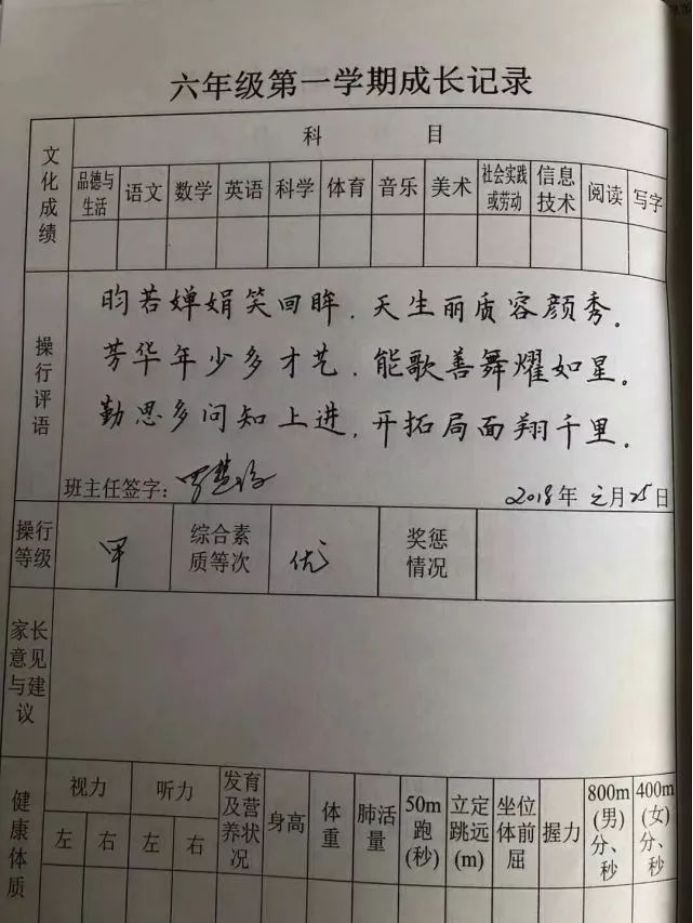 六年级第一学期成长记录
文化成绩
科 目
品德与生活 语文 数学 英语 科学 体育 音乐 美术 社会实践或劳动 信息技术 阅读 写字
操行评语
昀若婵娟笑回眸,天生丽质容颜秀。
芳华年少多才艺,能歌善舞耀如星。
勤思多问知上进,开拓局面翔千里。
班主任签字:
2018年元月25日
操行等级 甲 综合素质等次 优 奖惩情况
家长意见与建议
健康体质
视力 听力 发育及营养状况 身高 体重 肺活量 50m跑(秒) 立定跳远(m) 坐位体前屈 握力 800m(男)分、秒 400m(女)分、秒
左 右 左 右